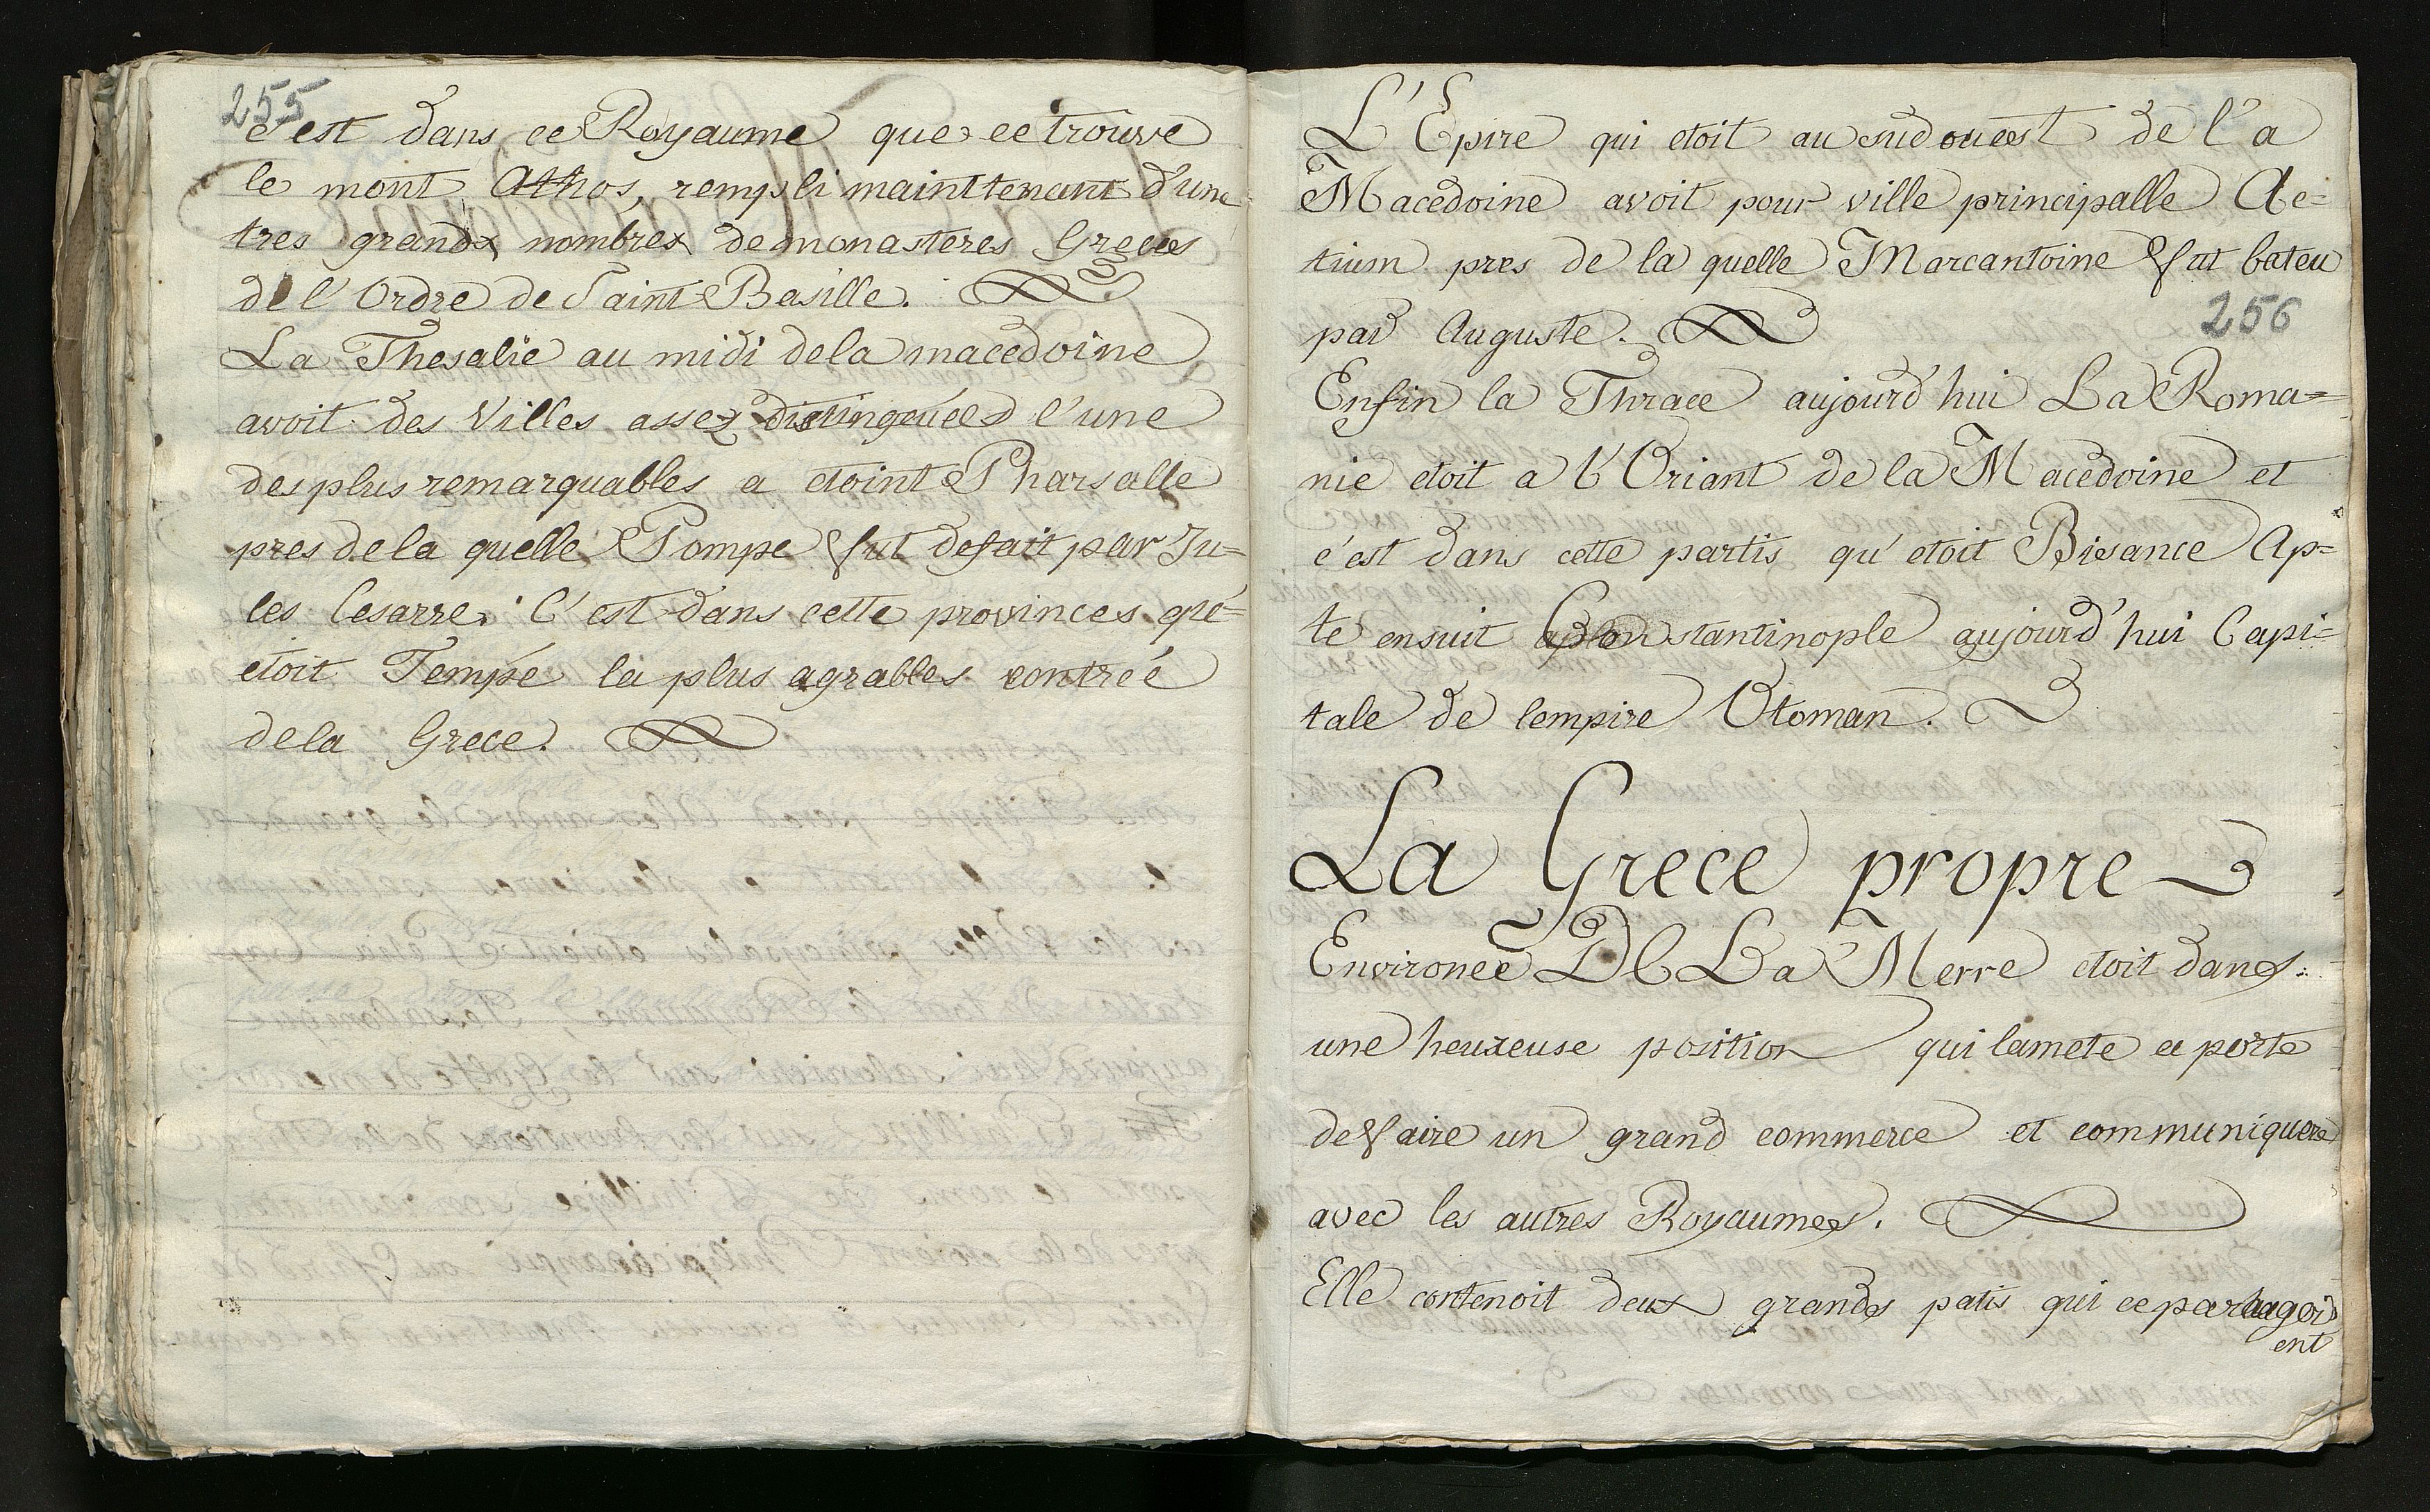 255
c'est dans ce Royaume que ce trouve
le mont Athos, rempli mainttenant d'une
tres grands nombres de monasteres Greces
de l'Ordre de Saint Basille.
La Thesalie au midi de la macedoine
avoit des Villes assez distingeués l'une
des plus remarquables a etoint Pharsalle
pres de la quelle Pompe fut defait par Ju=
les Cesarre. C'est dans cette provinces que=
etoit Tempé la plus agrables contreé
de la Grece.
L'Epire qui etoit au sud ouest de l'a
Macedoine avoit pour ville principalle Ac=
tium pres de la quelle Marcantoine fut bateu
par Auguste.
256
Enfin la Thrace aujourd'hui La Roma=
nie etoit a l'Oriant de la Macedoine et
c'est dans cette partis qu'etoit Bisance Ap=
te ensuit Constantinople aujourd'hui Capi=
tale de lempire Otoman.
La Grece propre
Environeé De La Merre etoit dans
une heureuse position qui lamete ce porte
de faire un grand commerce et communiquere
avec les autres Royaumes.
Elle contenoit deux grandes patis qui ce partagoi
ent